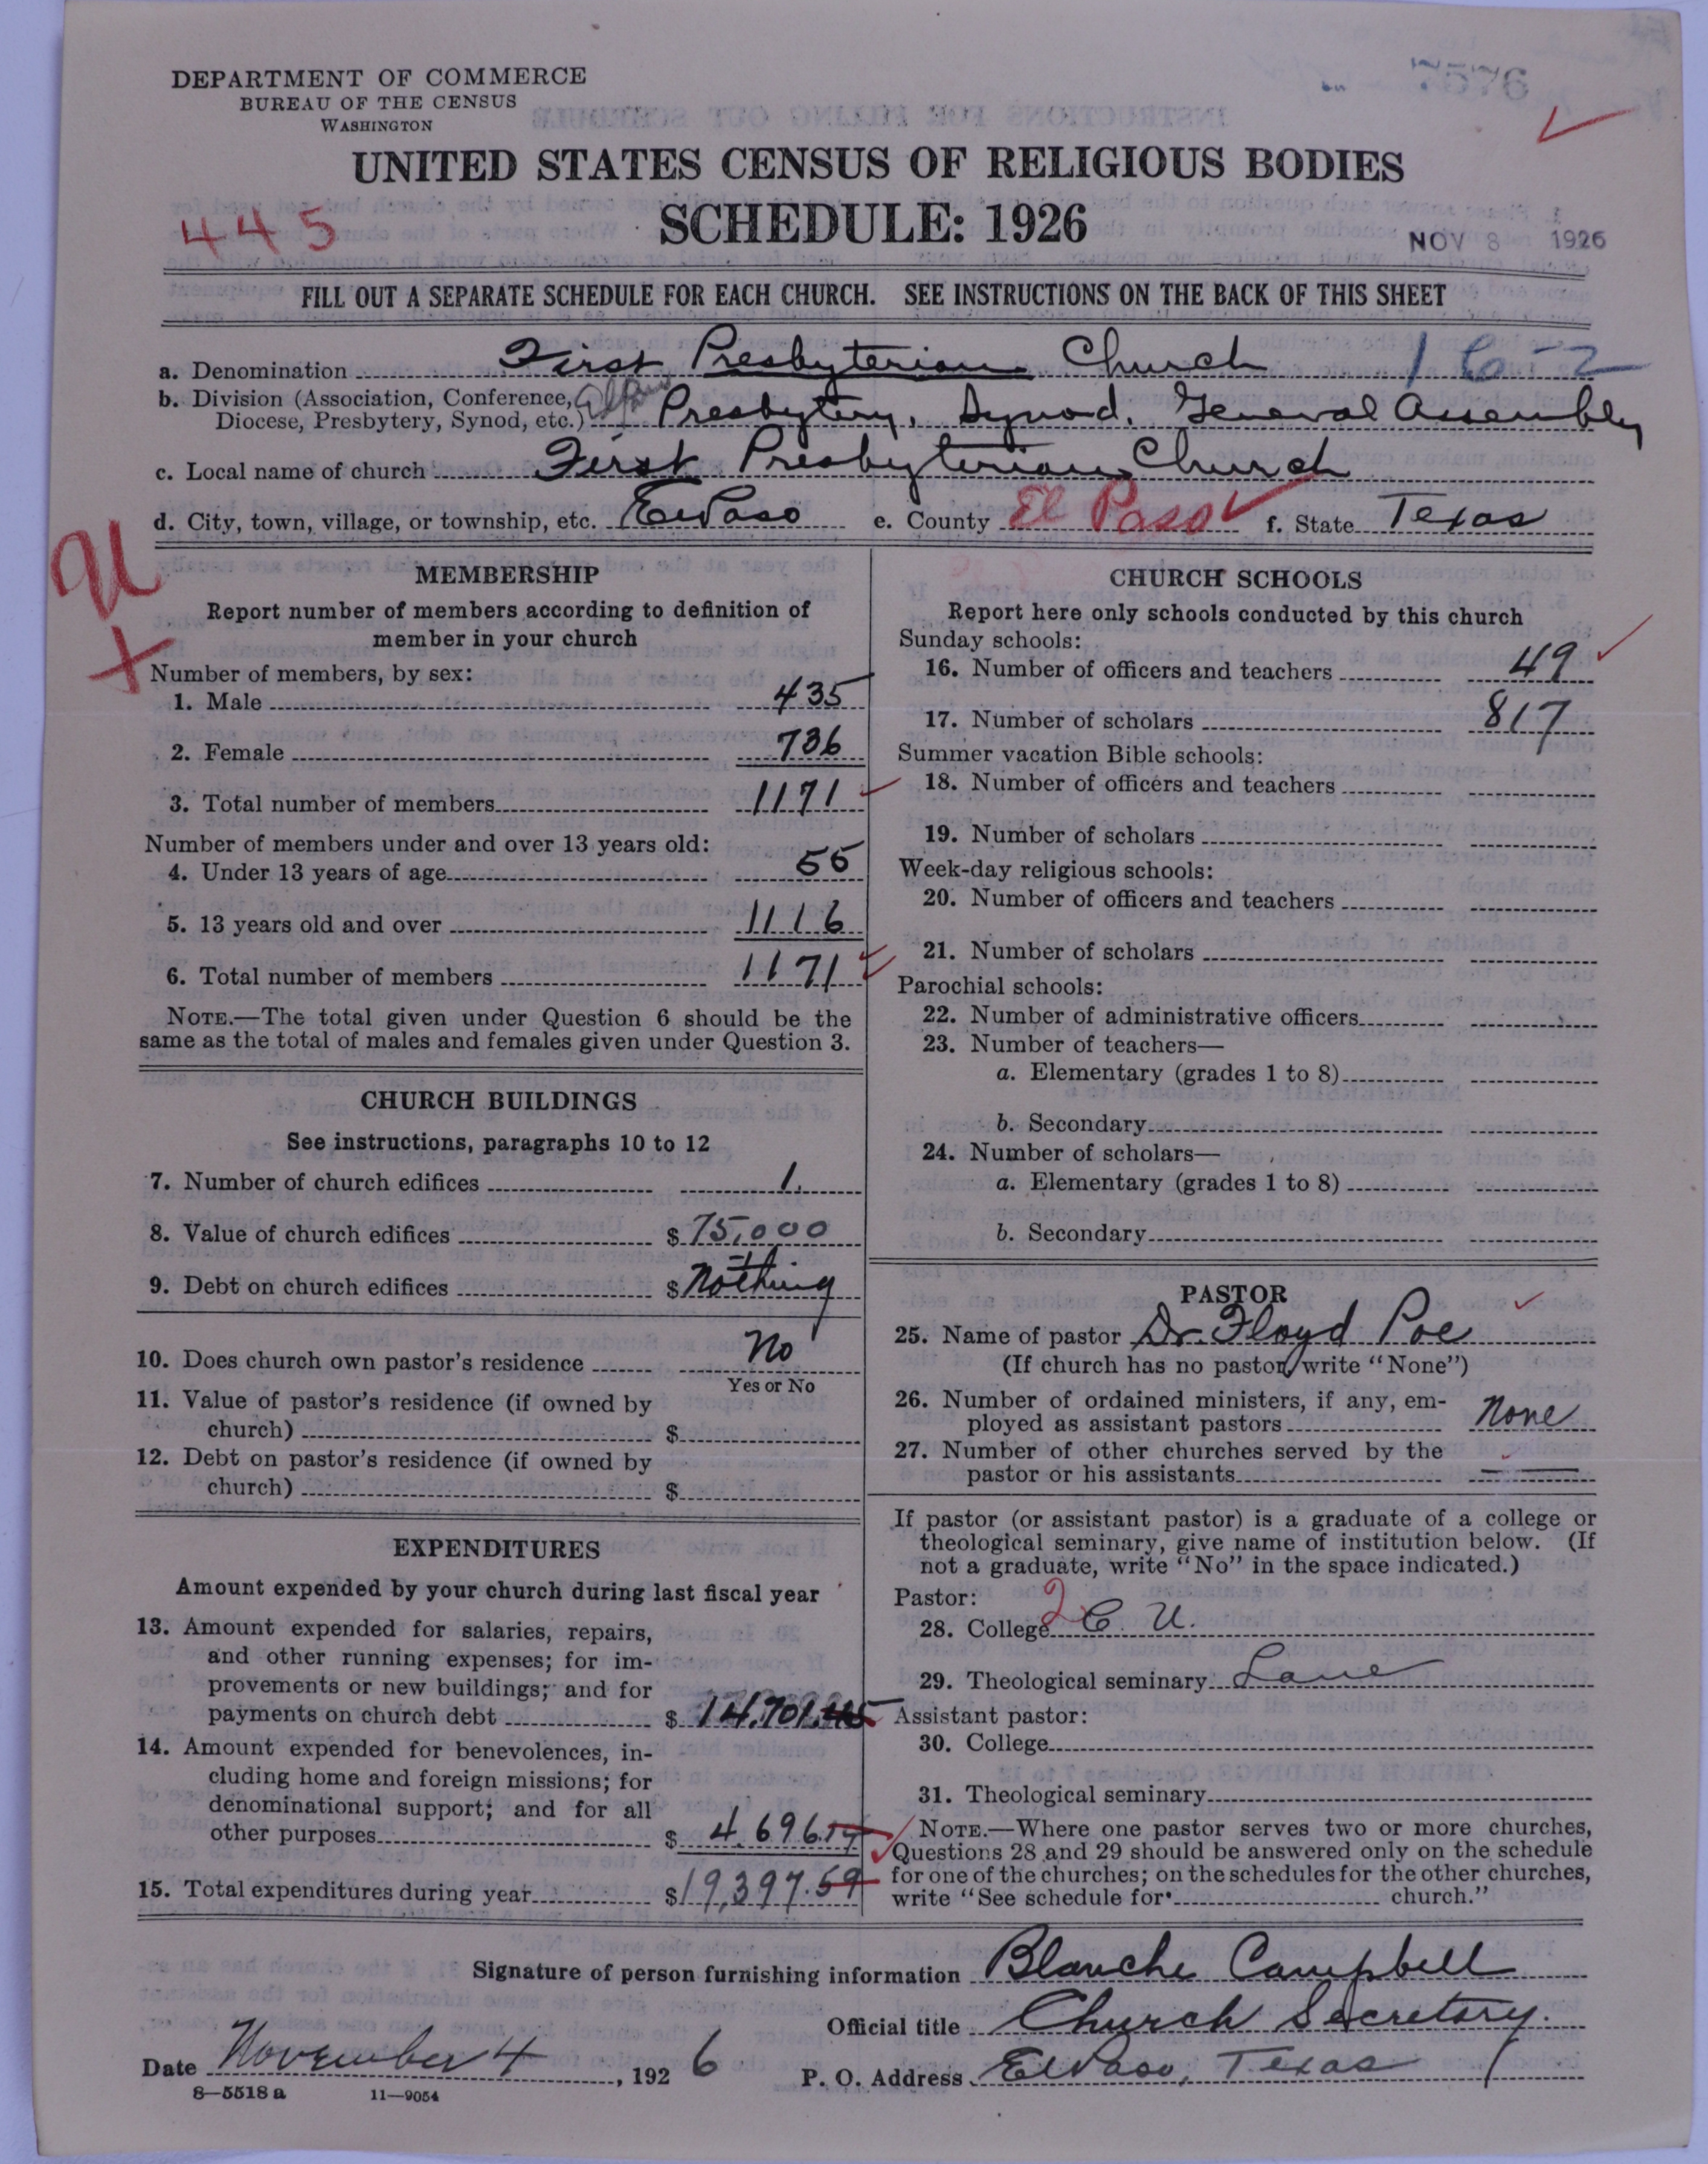 DEPARTMENT OF COMMERCE
BUREAU OF THE CENSUS
WASHINGTON
7576
UNITED STATES CENSUS OF RELIGIOUS BODIES
SCHEDULE: 1926
445
NOV 8 1926
FILL OUT A SEPARATE SCHEDULE FOR EACH CHURCH. SEE INSTRUCTIONS ON THE BACK OF THIS SHEET
a. Denomination First Presbyterian Church 162
b. Division (Association, Conference,
Diocese, Presbytery, Synod, etc.) Presbytery, Synod, General Assembly
c. Local name of church First Presbyterian Church
d. City, town, village, or township, etc. El Paso e. County El Paso f. State Texas
U
MEMBERSHIP
Report number of members according to definition of
member in your church
Number of members, by sex:
1. Male 435
2. Female 736
3. Total number of members 1171
Number of members under and over 13 years old:
4. Under 13 years of age 55
5. 13 years old and over 1116
6. Total number of members 1171
NOTE.—The total given under Question 6 should be the
same as the total of males and females given under Question 3.
CHURCH BUILDINGS
See instructions, paragraphs 10 to 12
7. Number of church edifices 1.
8. Value of church edifices $ 75,000
9. Debt on church edifices $ Nothing
10. Does church own pastor's residence No
Yes or No
11. Value of pastor's residence (if owned by
church) $
12. Debt on pastor's residence (if owned by
church) $
EXPENDITURES
Amount expended by your church during last fiscal year
13. Amount expended for salaries, repairs,
and other running expenses; for im-
provements or new buildings; and for
payments on church debt $ 14,701.45
14. Amount expended for benevolences, in-
cluding home and foreign missions; for
denominational support; and for all
other purposes $ 4,696.14
15. Total expenditures during year $ 19,397.59
CHURCH SCHOOLS
Report here only schools conducted by this church
Sunday schools:
16. Number of officers and teachers 49
17. Number of scholars 817
Summer vacation Bible schools:
18. Number of officers and teachers
19. Number of scholars
Week-day religious schools:
20. Number of officers and teachers
21. Number of scholars
Parochial schools:
22. Number of administrative officers
23. Number of teachers—
a. Elementary (grades 1 to 8)
b. Secondary
24. Number of scholars—
a. Elementary (grades 1 to 8)
b. Secondary
PASTOR
25. Name of pastor Dr. Floyd Poe
(If church has no pastor, write "None")
26. Number of ordained ministers, if any, em-
ployed as assistant pastors None
27. Number of other churches served by the
pastor or his assistants —
If pastor (or assistant pastor) is a graduate of a college or
theological seminary, give name of institution below. (If
not a graduate, write "No" in the space indicated.)
Pastor: 2
28. College C. U.
29. Theological seminary Lane
Assistant pastor:
30. College
31. Theological seminary
NOTE.—Where one pastor serves two or more churches,
Questions 28 and 29 should be answered only on the schedule
for one of the churches; on the schedules for the other churches,
write "See schedule for church."
Signature of person furnishing information Blanche Campbell
Official title Church Secretary.
Date November 4, 1926 P. O. Address El Paso, Texas
8—5518 a 11—9054